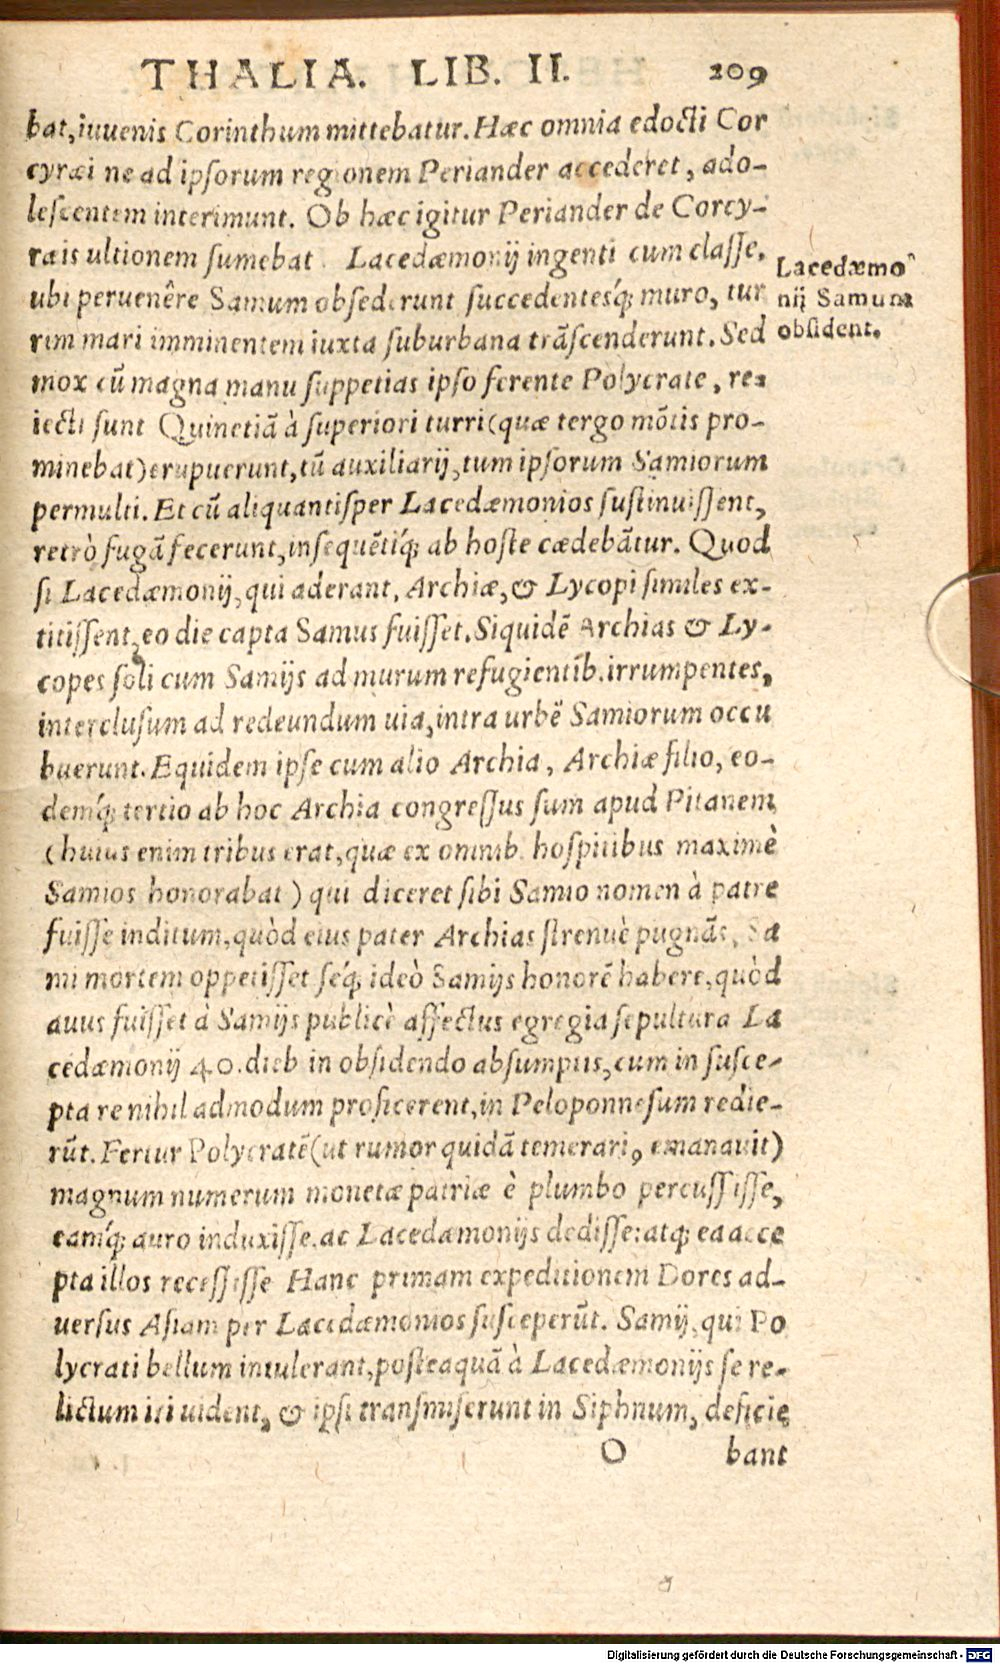 THALIA. LIB. II. 209
bat, iuuenis Corinthum mittebatur. Hæc omnia edocti Cor
cyræi ne ad ipsorum regionem Periander accederet, ado-
lescentem interimunt. Ob hæc igitur Periander de Corcy-
rais ultionem sumebat. Lacedæmonij ingenti cum classe,
ubi peruenêre Samum obsederunt succedentesq́; muro, tur
rim mari imminentem iuxta suburbana trãscenderunt. Sed
mox cũ magna manu suppetias ipso ferente Polycrate, re-
iecti sunt Quinetiã à superiori turri (quæ tergo mõtis pro-
minebat) erupuerunt, tũ auxiliarij, tum ipsorum Samiorum
permulti. Et cũ aliquantisper Lacedæmonios sustinuissent,
retrò fugã fecerunt, insequẽtiq́; ab hoste cædebãtur. Quod
si Lacedæmonij, qui aderant, Archiæ, & Lycopi similes ex-
titissent, eo die capta Samus fuisset. Siquidẽ Archias & Ly-
copes soli cum Samijs ad murum refugientib. irrumpentes,
interclusum ad redeundum uia, intra urbẽ Samiorum occu
buerunt. Equidem ipse cum alio Archia, Archiæ filio, eo-
demq́; tertio ab hoc Archia congressus sum apud Pitanem
(huius enim tribus erat, quæ ex omnib. hospitibus maximè
Samios honorabat) qui diceret sibi Samio nomen à patre
fuisse inditum, quòd eius pater Archias strenuè pugnãs, Sa
mi mortem oppetisset seq́; ideò Samijs honorẽ habere, quòd
auus fuisset à Samijs publicè affectus egregia sepultura La
cedæmonij 40. dieb in obsidendo absumptis, cum in susce-
pta re nihil admodum proficerent, in Peloponnesum redie-
rũt. Fertur Polycratẽ (ut rumor quidã temerariꝰ emanauit)
magnum numerum monetæ patriæ è plumbo percussisse,
eamq́; auro induxisse, ac Lacedæmonijs dedisse: atq; ea acce
pta illos recessisse Hanc primam expeditionem Dores ad-
uersus Asiam per Lacedæmonios susceperũt. Samij, qui Po
lycrati bellum intulerant, posteaquã à Lacedæmonijs se re-
lictum iri uident, & ipsi transmiserunt in Siphnum, deficie
O bant
Lacedæmo
nij Samum
obsident.
Digitalisierung gefördert durch die Deutsche Forschungsgemeinschaft - DFG